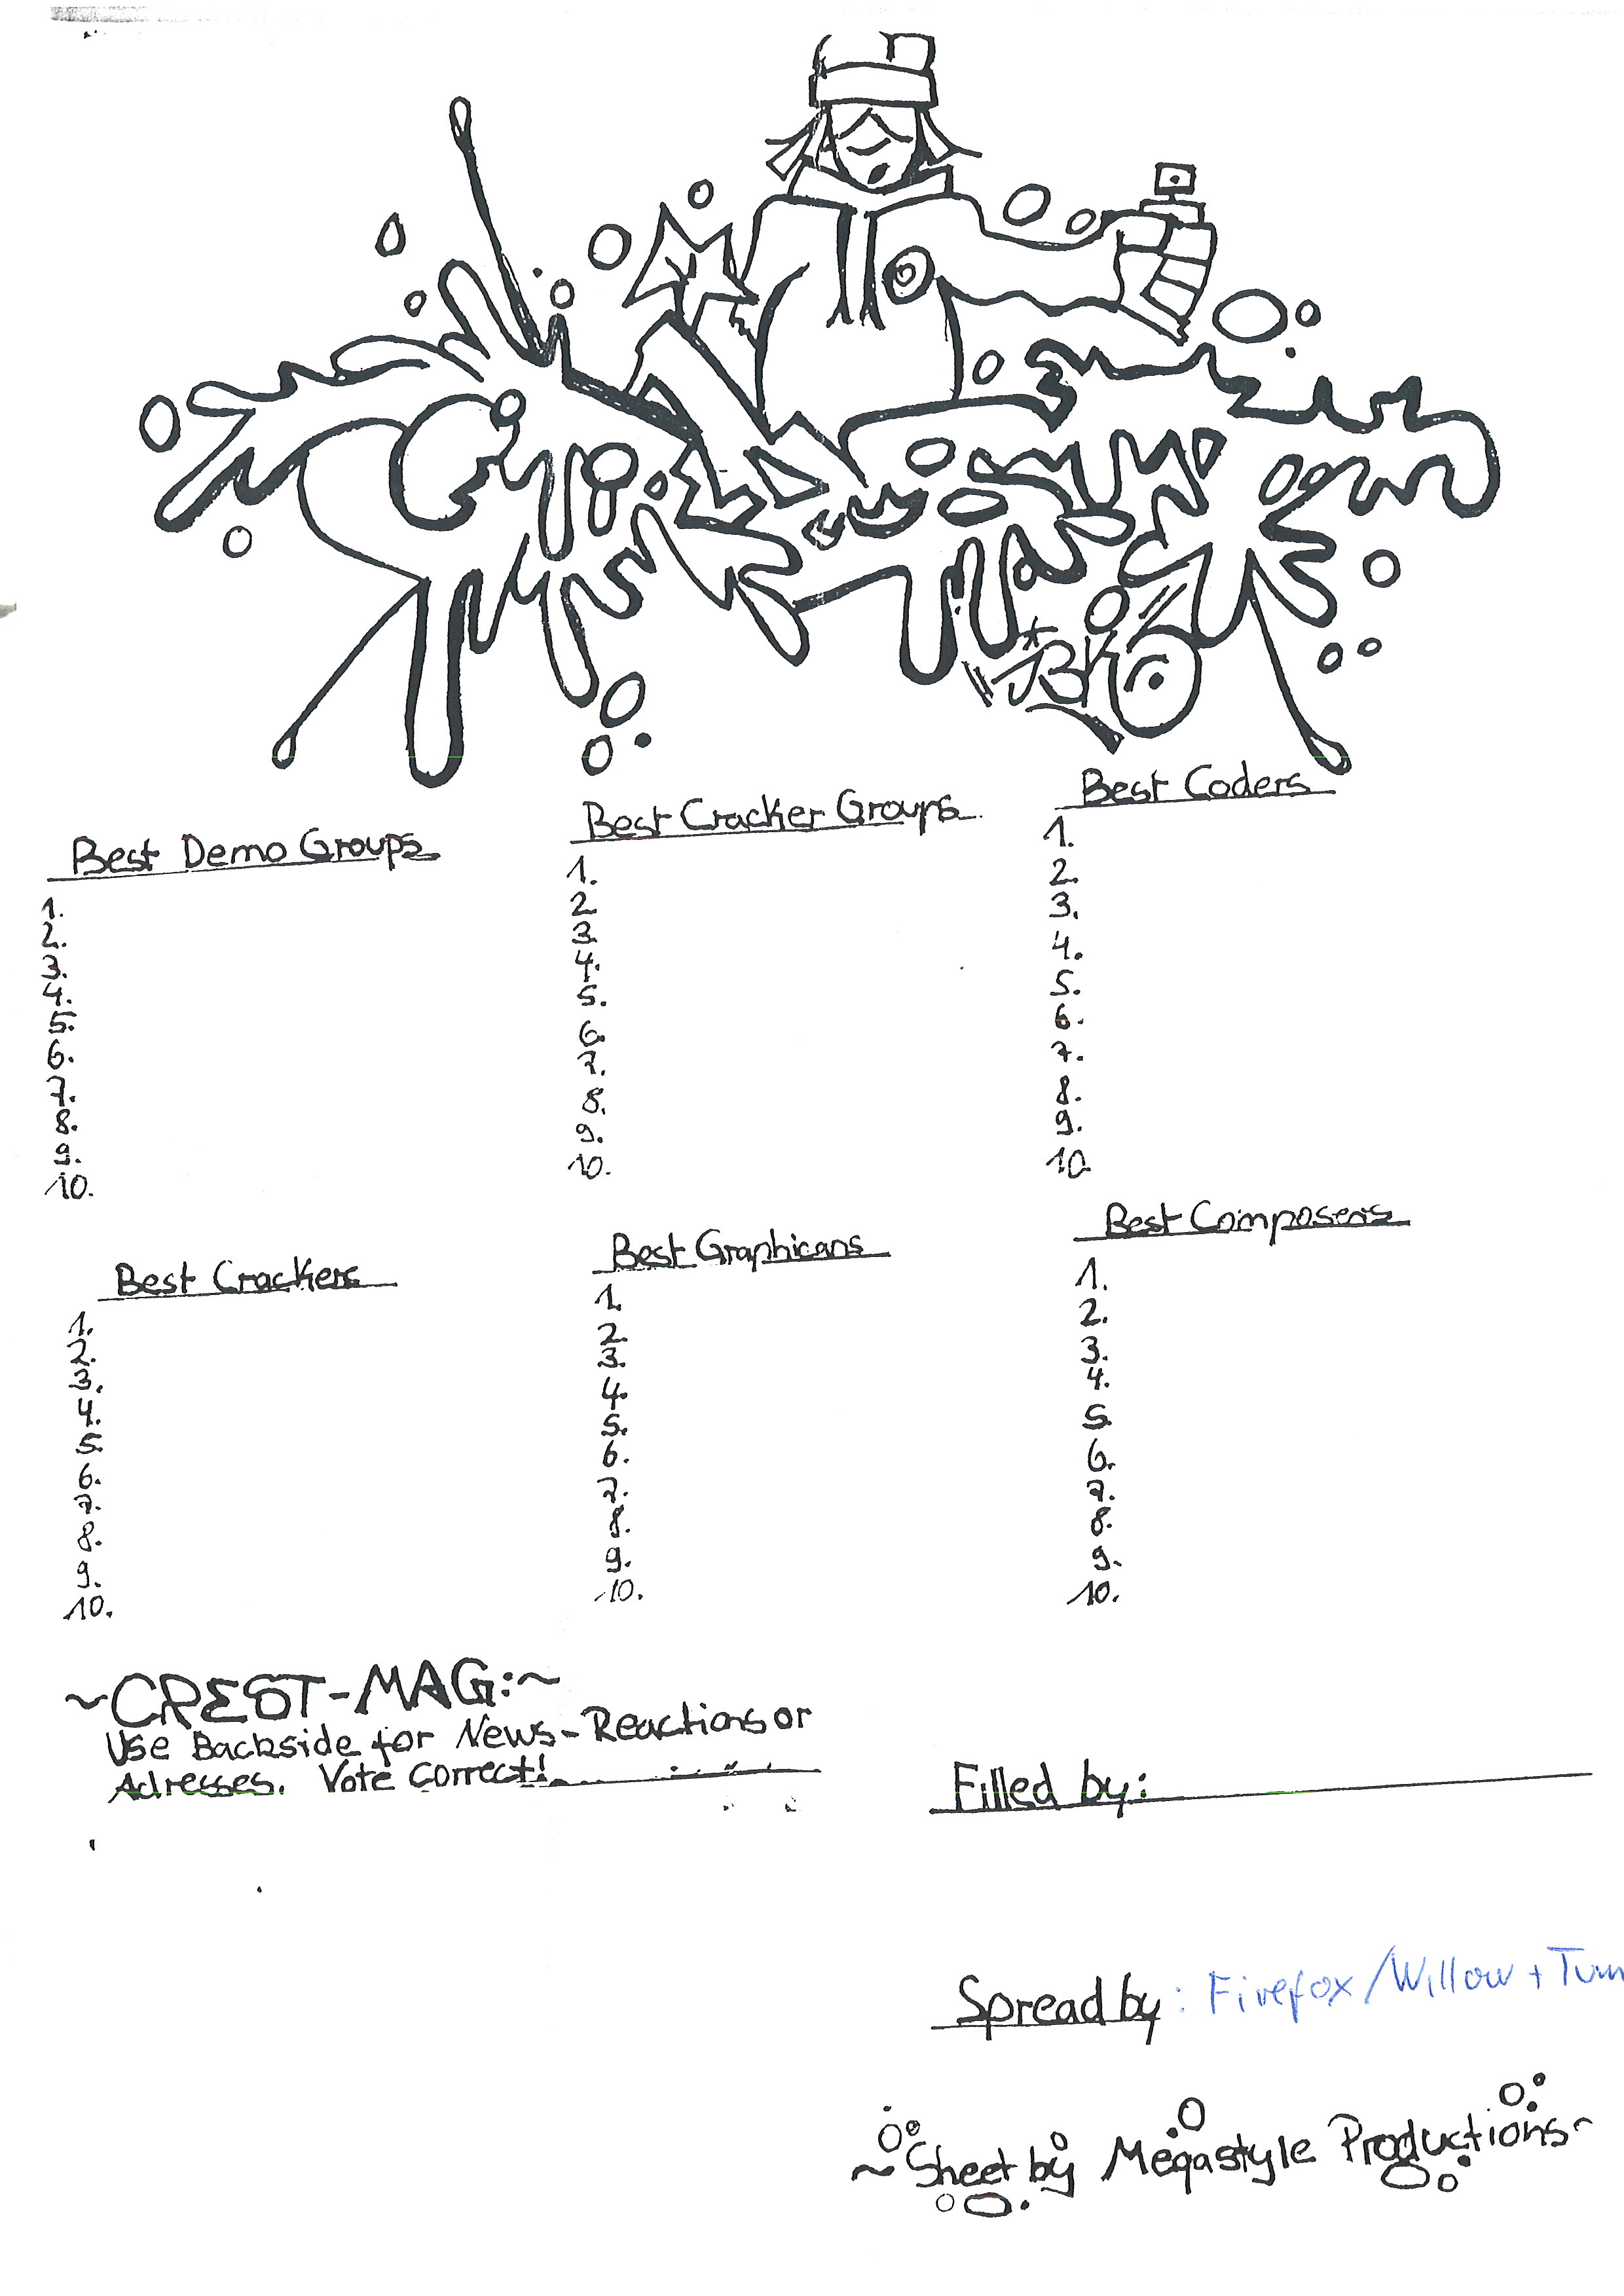 Best Demo Groups
1.
2.
3.
4.
5.
6.
7.
8.
9.
10.
Best Cracker Groups
1.
2
3
4.
5.
6.
7.
8.
9.
10.
Best Coders
1.
2.
3.
4.
5.
6.
7.
8.
9.
10.
Best Crackers
1.
2.
3.
4.
5.
6.
7.
8.
9.
10.
Best Graphicans
1.
2.
3.
4.
5.
6.
7.
8.
9.
10.
Best Composers
1.
2.
3.
4.
5.
6.
7.
8.
9.
10.
~CREST-MAG:~
Use Backside for News-Reactions or
Adresses. Vote Correct!
Filled by:
Spread by: Firefox/Willow +
~Sheet by Megastyle Productions~